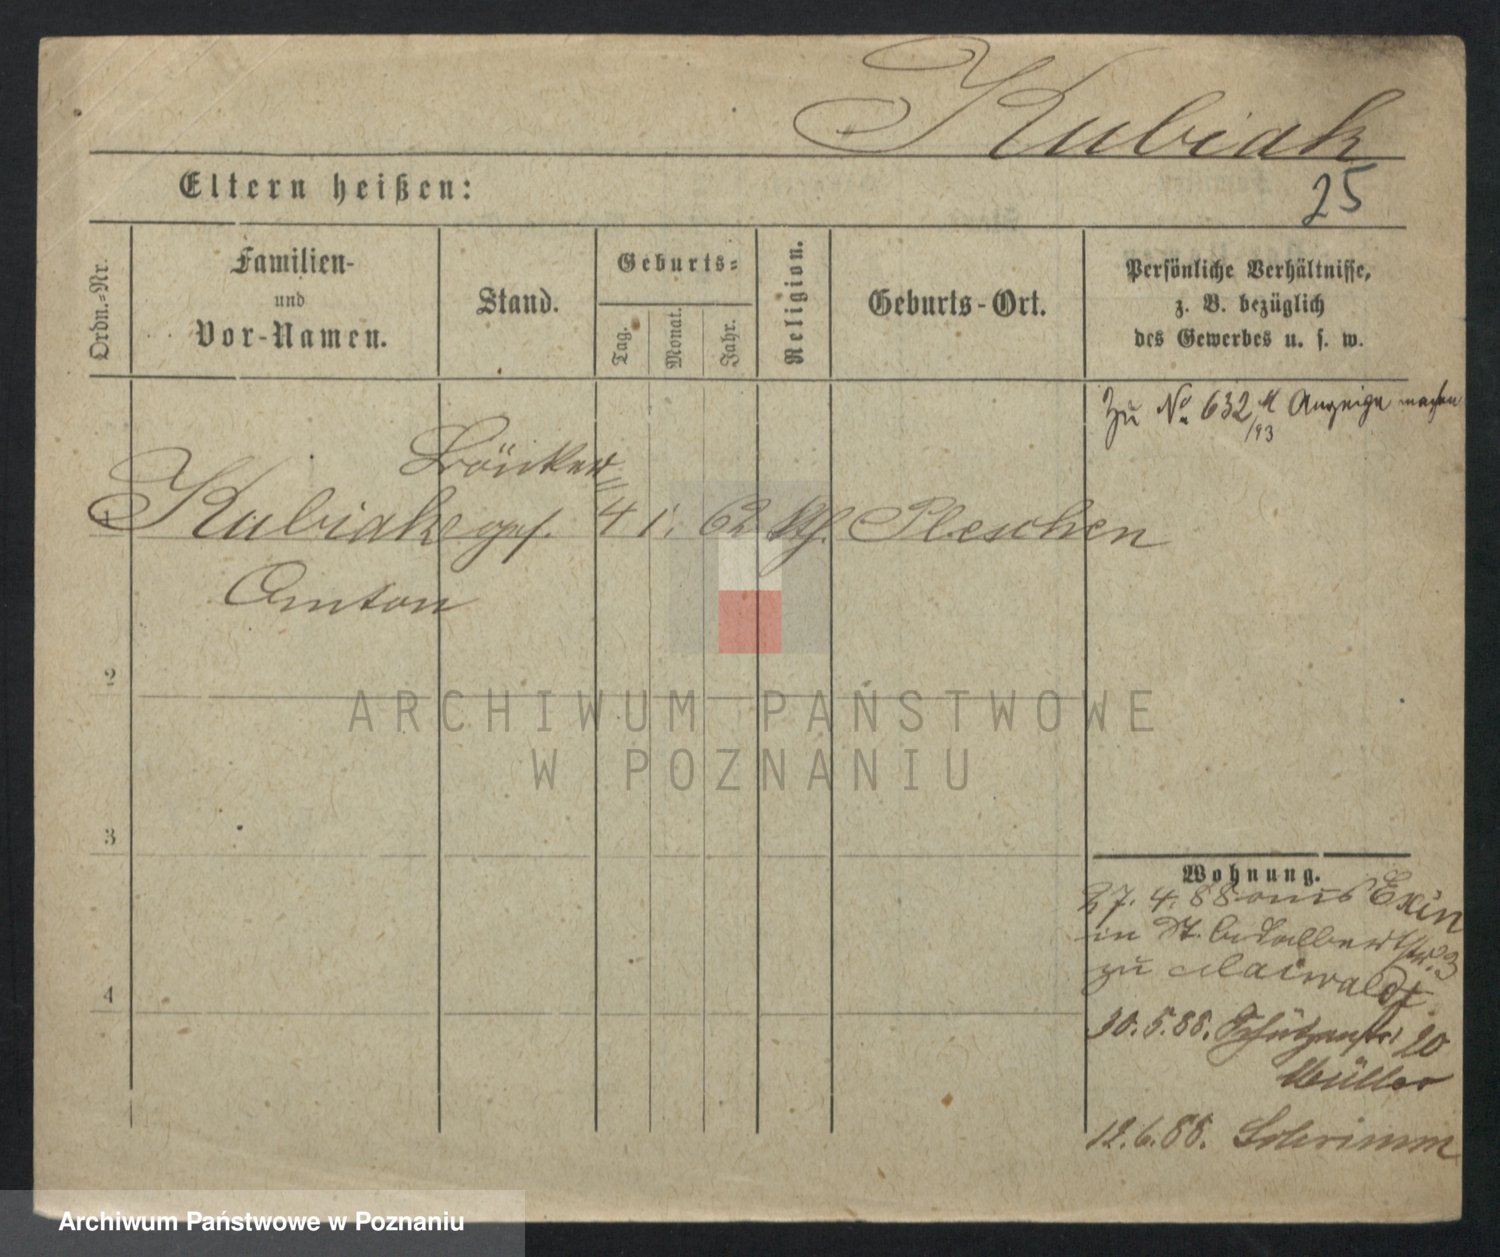 Kubiak
25
Eltern heißen:
Ordn.-Nr.
Familien-
und
Vor-Namen.
Stand.
Geburts-
Tag.
Monat.
Jahr.
Religion.
Geburts-Ort.
Persönliche Verhältnisse,
z. B. bezüglich
des Gewerbes u. s. w.
Zu No. 632 M Anzeige machen
/93
Kubiak ges. 4 1. 62 Kth. Pleschen
Anton
2
3
4
ARCHIWUM PAŃSTWOWE
W POZNANIU
Wohnung.
27. 4. 88 aus Exin
in St. Adalbertstr. 3
zu Maiwaldt
30. 5. 88. Schützenstr. 20
Müller
12. 6. 88. Schrimm
Archiwum Państwowe w Poznaniu